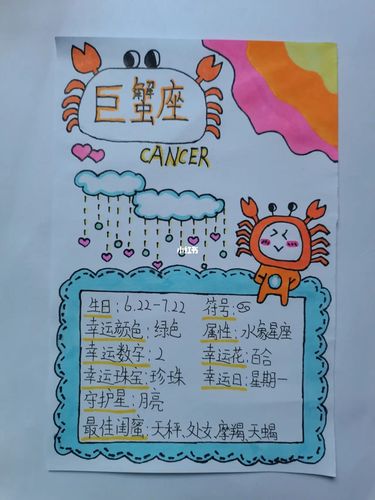 巨蟹座
CANCER
小红书
生日：6.22-7.22 符号：♋
幸运颜色：绿色 属性：水象星座
幸运数字：2 幸运花：百合
幸运珠宝：珍珠 幸运日：星期一
守护星：月亮
最佳闺蜜：天秤、处女、摩羯、天蝎